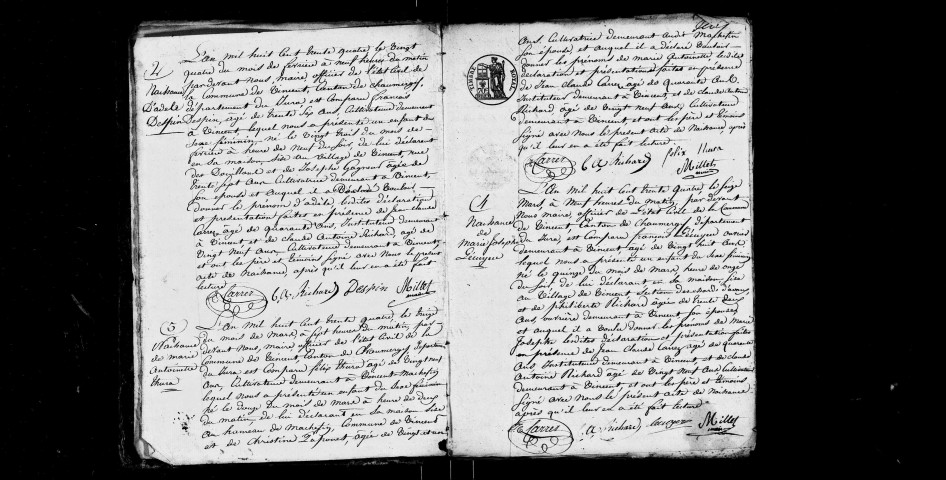 2
Naissance
D'adele
Despin
L'An mil huit Cent trente quatre, le vingt
quatre du mois de février à neuf heures du matin
pardevant Nous, Maire, officier de l'état Civil de
la Commune de Vincent, Canton de Chaumergy,
département du Jura, est Comparu François
Despin, agé de trente Six ans, Cultivateur demeurant
à Vincent, lequel nous a présenté un enfant du
Sexe féminin, né le Vingt trois du mois de
février à heure de neuf du soir, de lui déclarant
en sa maison, sise au village de Vincent, rue
des et de Josephe Gagneut agée de
trente sept ans Cultivatrice demeurant à Vincent,
son épouse et auquel il a Déclaré Vouloir
donner le prenom d'adele, lesdites déclaration
et présentation faites en présence de Jean Claude
Carrez agé de quarante ans, Instituteur demeurant
à Vincent et de claude Antoine Richard, agé de
Vingt Neuf ans, Cultivateur demeurant à Vincent,
et ont les père et témoins signé avec Nous le présent
acte de Naissance, après qu'il leur en a été fait
lecture
Carrez C A Richard Despin Millet
3
Naissance
de marie
Antoinette
thura
L'An mil huit Cent trente quatre, le douze
du mois de Mars, à Sept heures du matin, par
devant Nous maire officier de l'état Civil de la
Commune de Vincent, Canton de Chaumergy, département
du Jura est Comparu félix thura agé de Vingt neuf
ans, Cultivateur demeurant à Vincent
lequel Nous a présenté un enfant du Sexe féminin
né le douze du mois de mars à heure de deux
du matin, de lui déclarant en sa maison sise
au hameau de , Commune de Vincent
et de Christine , agée de Vingt et un
ans, Cultivatrice demeurant audit
son épouse et auquel il a déclaré Vouloir
donner les prénoms de marie Antoinette, lesdites
déclaration et présentation faites en présence
de Jean Claude Carrez agé de quarante ans
Instituteur demeurant à Vincent et de claude Antoine
Richard agé de Vingt neuf ans, Cultivateur
demeurant à Vincent, et ont les père et témoins
signé avec Nous le présent acte de Naissance après
qu'il leur en a été fait lecture
Carrez C A Richard felix thura Millet
TIMBRE ROYAL
4
Naissance
de
Marie Josephe
Lécuyer
L'An mil huit Cent trente quatre, le seize
Mars, à Neuf heures du matin, par devant
Nous maire, officier de l'état Civil de la Commune
de Vincent, Canton de Chaumergy, département
du Jura, est Comparu françois Lécuyer ouvrier
demeurant à Vincent agé de Vingt huit ans
lequel nous a présenté un enfant du Sexe féminin
né le quinze du mois de mars, heure de onze
du soir, de lui déclarant en sa maison, sise
au Village de Vincent
et de philiberte Richard agée de trente deux
ans, ouvrière demeurant à Vincent, son épouse
et auquel il a voulu donner les prenoms de marie
Josephe lesdites déclaration et présentation faites
en présence de Jean Claude Carrez agé de quarante
ans Instituteur demeurant à Vincent, et de claude
Antoine Richard agé de Vingt neuf ans Cultivateur
demeurant à Vincent, et ont les père et témoins
signé avec Nous le présent acte de Naissance
après qu'il leur en a été fait lecture
Carrez C A Richard Millet